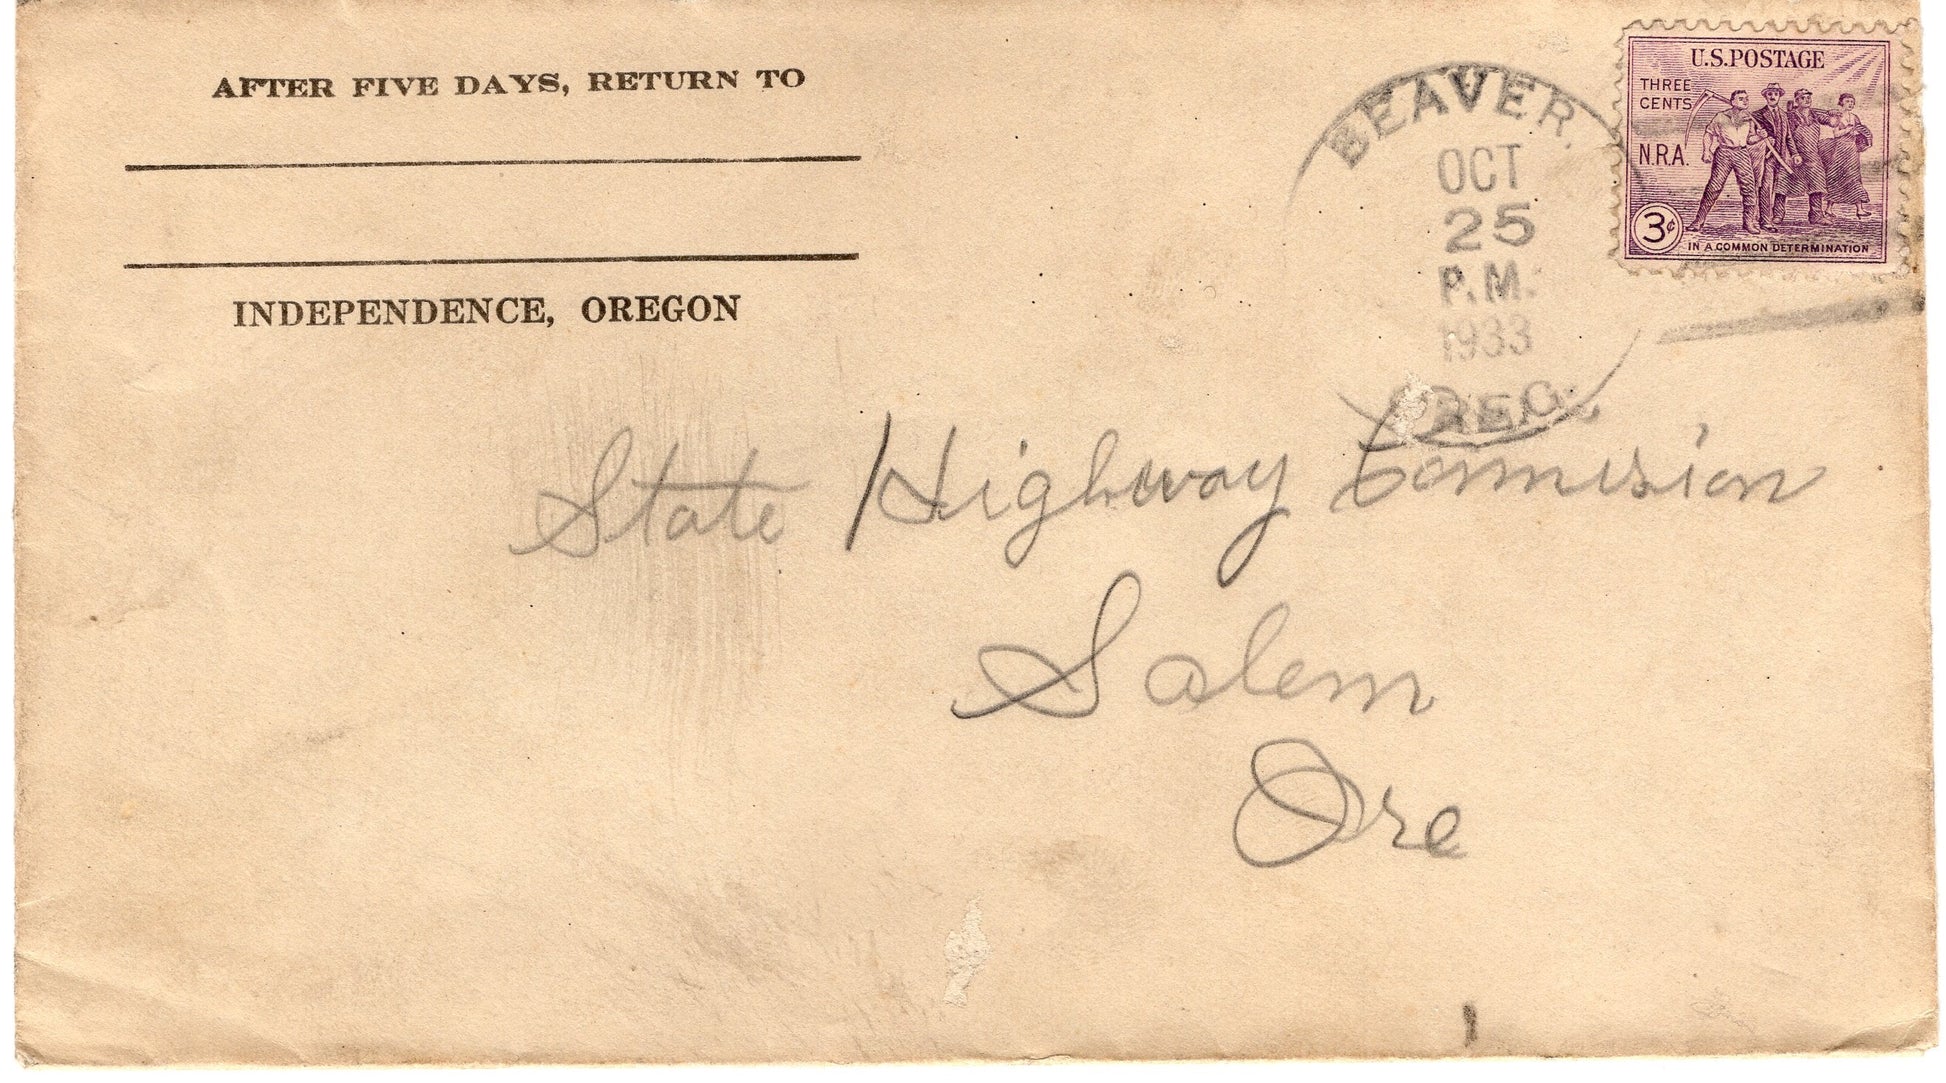 AFTER FIVE DAYS, RETURN TO
INDEPENDENCE, OREGON
BEAVER.
OCT
25
P.M.
1933
OREG.
U.S. POSTAGE
THREE
CENTS
N.R.A.
3¢
IN A COMMON DETERMINATION
State Highway Commision
Salem
Ore